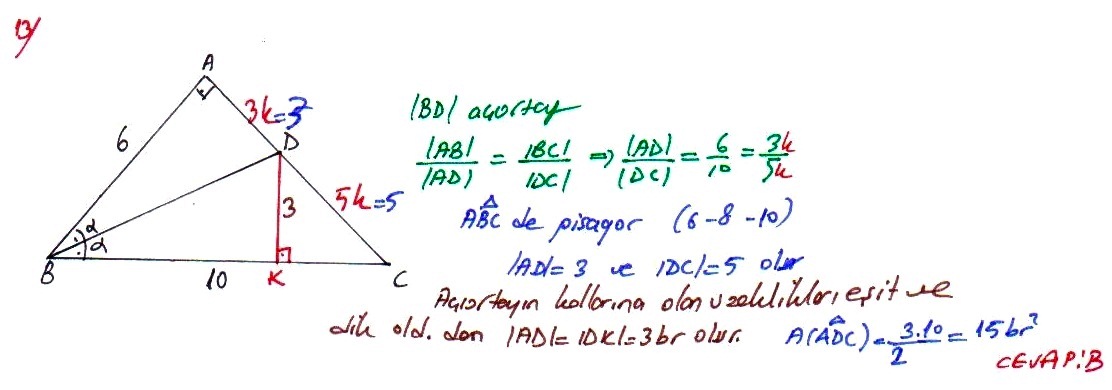 13/
A
6
3k=3
D
3
5k=5
α
α
B
10
K
C
|BD| açıortay
|AB|/|AD| = |BC|/|DC| ⇒ |AD|/|DC| = 6/10 = 3k/5k
ABC de pisagor (6-8-10)
|AD|=3 ve |DC|=5 olur
Açıortayın kollarına olan uzaklıkları eşit ve
dik old. dan |AD|=|DK|=3br olur. A(ADC)=3.10/2=15br²
CEVAP:B